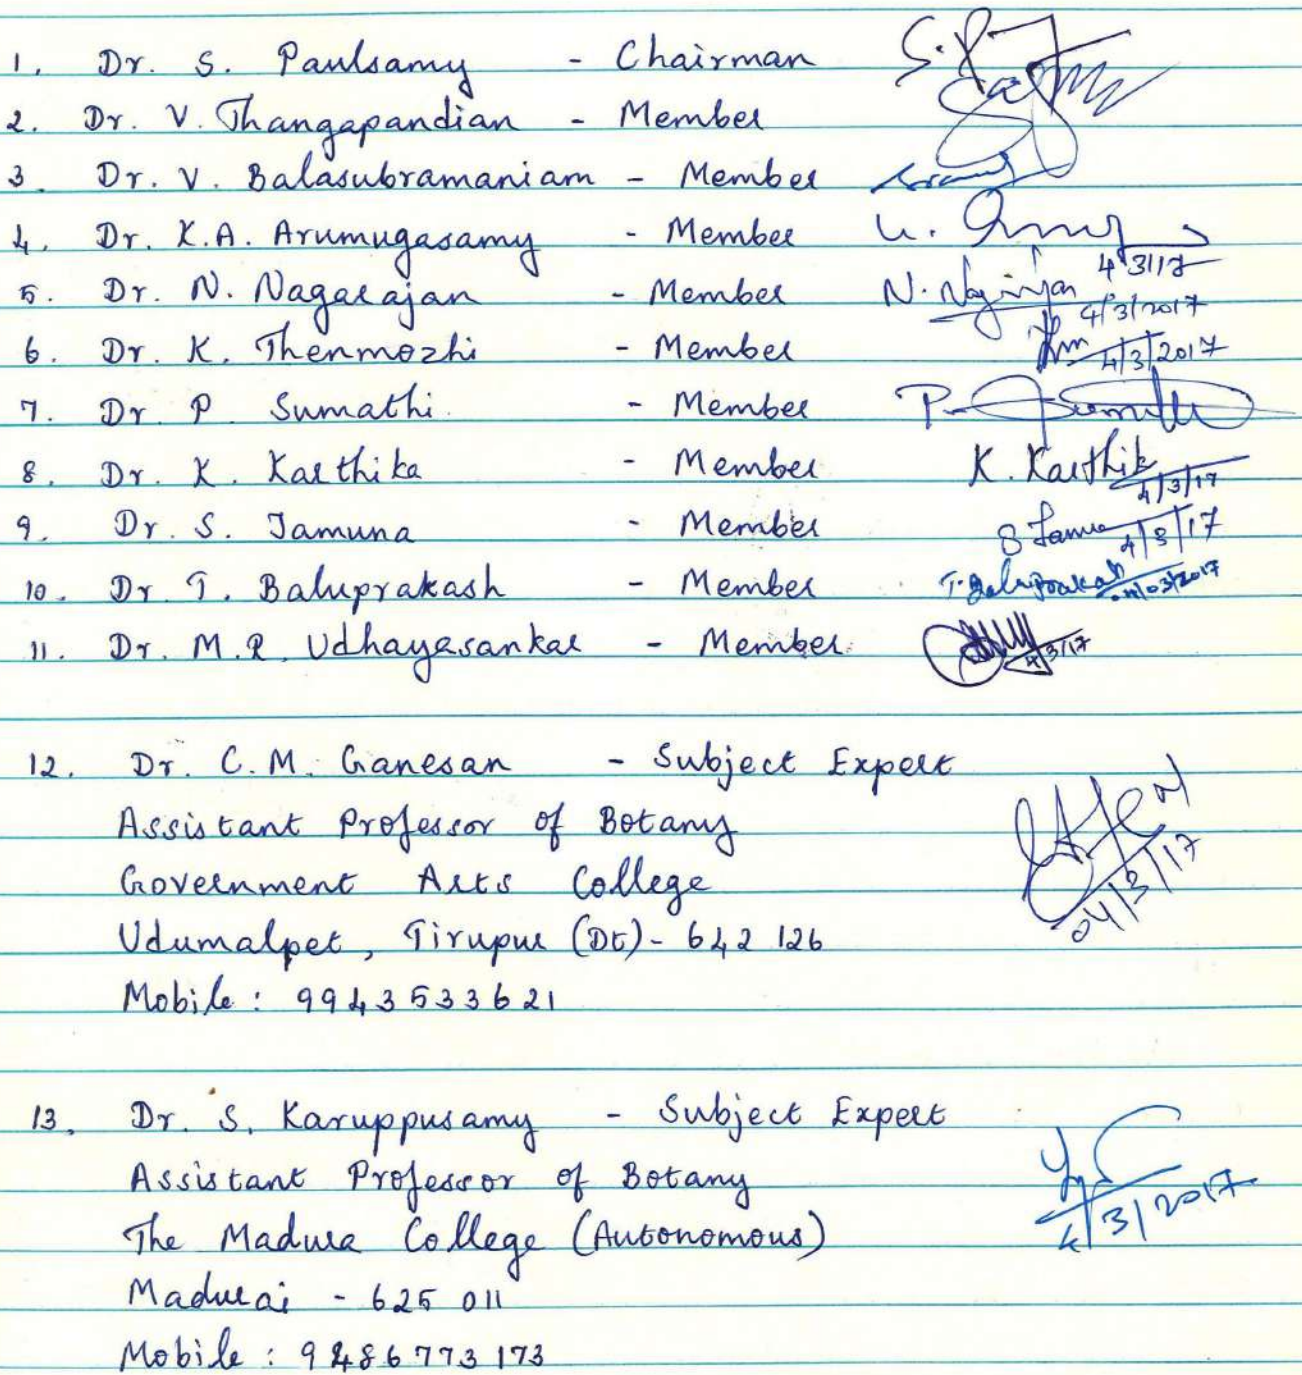 1. Dr. S. Paulsamy - Chairman S. P
2. Dr. V. Thangapandian - Member
3. Dr. V. Balasubramaniam - Member
4. Dr. K.A. Arumugasamy - Member
4/3/17
5. Dr. N. Nagarajan - Member N. Nagarajan
4/3/2017
6. Dr. K. Thenmozhi - Member
4/3/2017
7. Dr. P Sumathi. - Member P.
8. Dr. K. Karthika - Member K. Karthik
4/3/17
9. Dr. S. Jamuna - Member S
4/3/17
10. Dr T. Baluprakash - Member T. Baluprakash
04/03/2017
11. Dr. M.R. Udhayasankar - Member
4/3/17
12. Dr. C.M. Ganesan - Subject Expert
Assistant Professor of Botany
Government Arts College
04/3/17
Udumalpet, Tirupur (Dt) - 642 126
Mobile : 9943533621
13. Dr. S. Karuppusamy - Subject Expert
Assistant Professor of Botany
4/3/2017
The Madura College (Autonomous)
Madurai - 625 011
Mobile : 9486773173